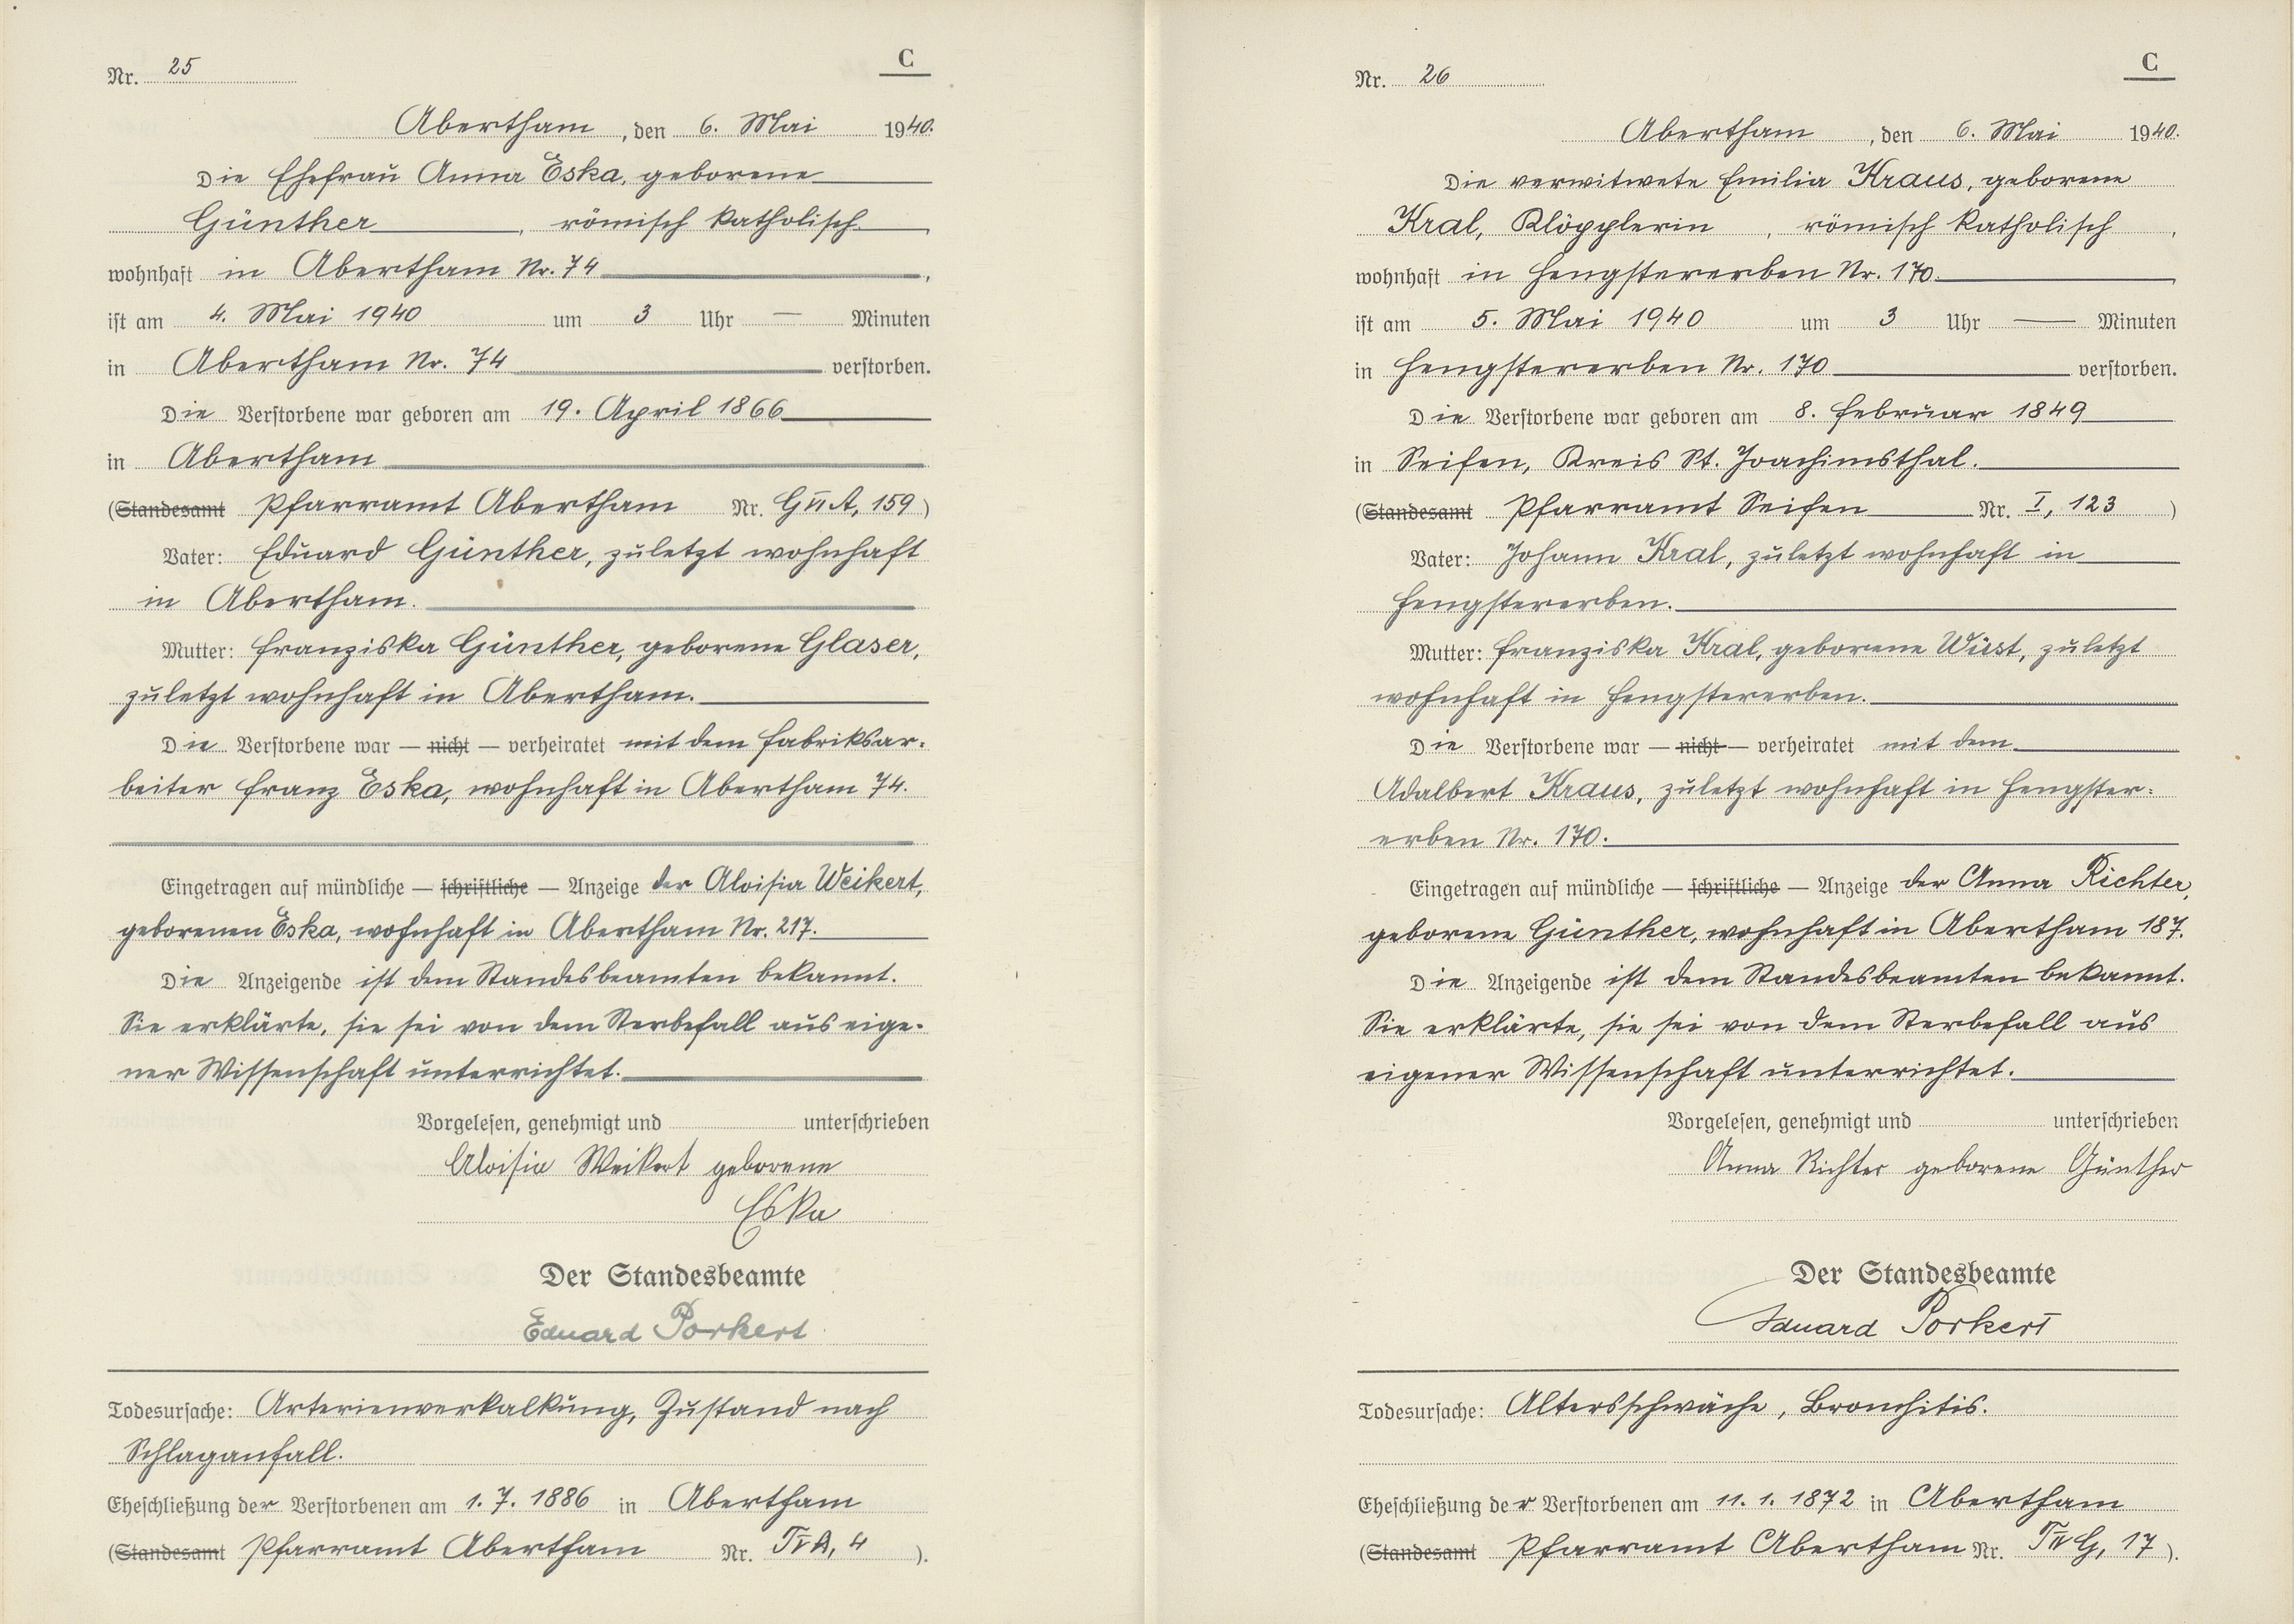 Nr. 25
C
Abertham, den 6. Mai 1940.
Die Ehefrau Anna Eska, geborene
Günther, römisch katholisch.,
wohnhaft in Abertham Nr. 74,
ist am 4. Mai 1940 um 3 Uhr — Minuten
in Abertham Nr. 74 verstorben.
Die Verstorbene war geboren am 19. April 1866
in Abertham
(Standesamt Pfarramt Abertham Nr. G VI A, 159)
Vater: Eduard Günther, zuletzt wohnhaft
in Abertham.
Mutter: Franziska Günther, geborene Glaser,
zuletzt wohnhaft in Abertham.
Die Verstorbene war — nicht — verheiratet mit dem Fabriksar-
beiter Franz Eska, wohnhaft in Abertham 74.
Eingetragen auf mündliche — schriftliche — Anzeige der Aloisia Weikert,
geborenen Eska, wohnhaft in Abertham Nr. 217.
Die Anzeigende ist dem Standesbeamten bekannt.
Sie erklärte, sie sei von dem Sterbefall aus eige-
ner Wissenschaft unterrichtet.
Vorgelesen, genehmigt und unterschrieben
Aloisia Weikert geborene
Eska
Der Standesbeamte
Eduard Porkert
Todesursache: Arterienverkalkung, Zustand nach
Schlaganfall.
Eheschließung der Verstorbenen am 1. 7. 1886 in Abertham
(Standesamt Pfarramt Abertham Nr. T V A, 4).
Nr. 26
C
Abertham, den 6. Mai 1940.
Die verwitwete Emilia Kraus, geborene
Kral, Klöpplerin, römisch katholisch,
wohnhaft in Hengstererben Nr. 170.,
ist am 5. Mai 1940 um 3 Uhr — Minuten
in Hengstererben Nr. 170 verstorben.
Die Verstorbene war geboren am 8. Februar 1849
in Seifen, Kreis St. Joachimsthal.
(Standesamt Pfarramt Seifen Nr. I, 123)
Vater: Johann Kral, zuletzt wohnhaft in
Hengstererben.
Mutter: Franziska Kral, geborene Wüst, zuletzt
wohnhaft in Hengstererben.
Die Verstorbene war — nicht — verheiratet mit dem
Adalbert Kraus, zuletzt wohnhaft in Hengster-
erben Nr. 170.
Eingetragen auf mündliche — schriftliche — Anzeige der Anna Richter,
geborene Günther, wohnhaft in Abertham 187.
Die Anzeigende ist dem Standesbeamten bekannt.
Sie erklärte, sie sei von dem Sterbefall aus
eigener Wissenschaft unterrichtet.
Vorgelesen, genehmigt und unterschrieben
Anna Richter geborene Günther
Der Standesbeamte
Eduard Porkert
Todesursache: Altersschwäche, Bronchitis.
Eheschließung der Verstorbenen am 11. 1. 1872 in Abertham
(Standesamt Pfarramt Abertham Nr. T IV G, 17).